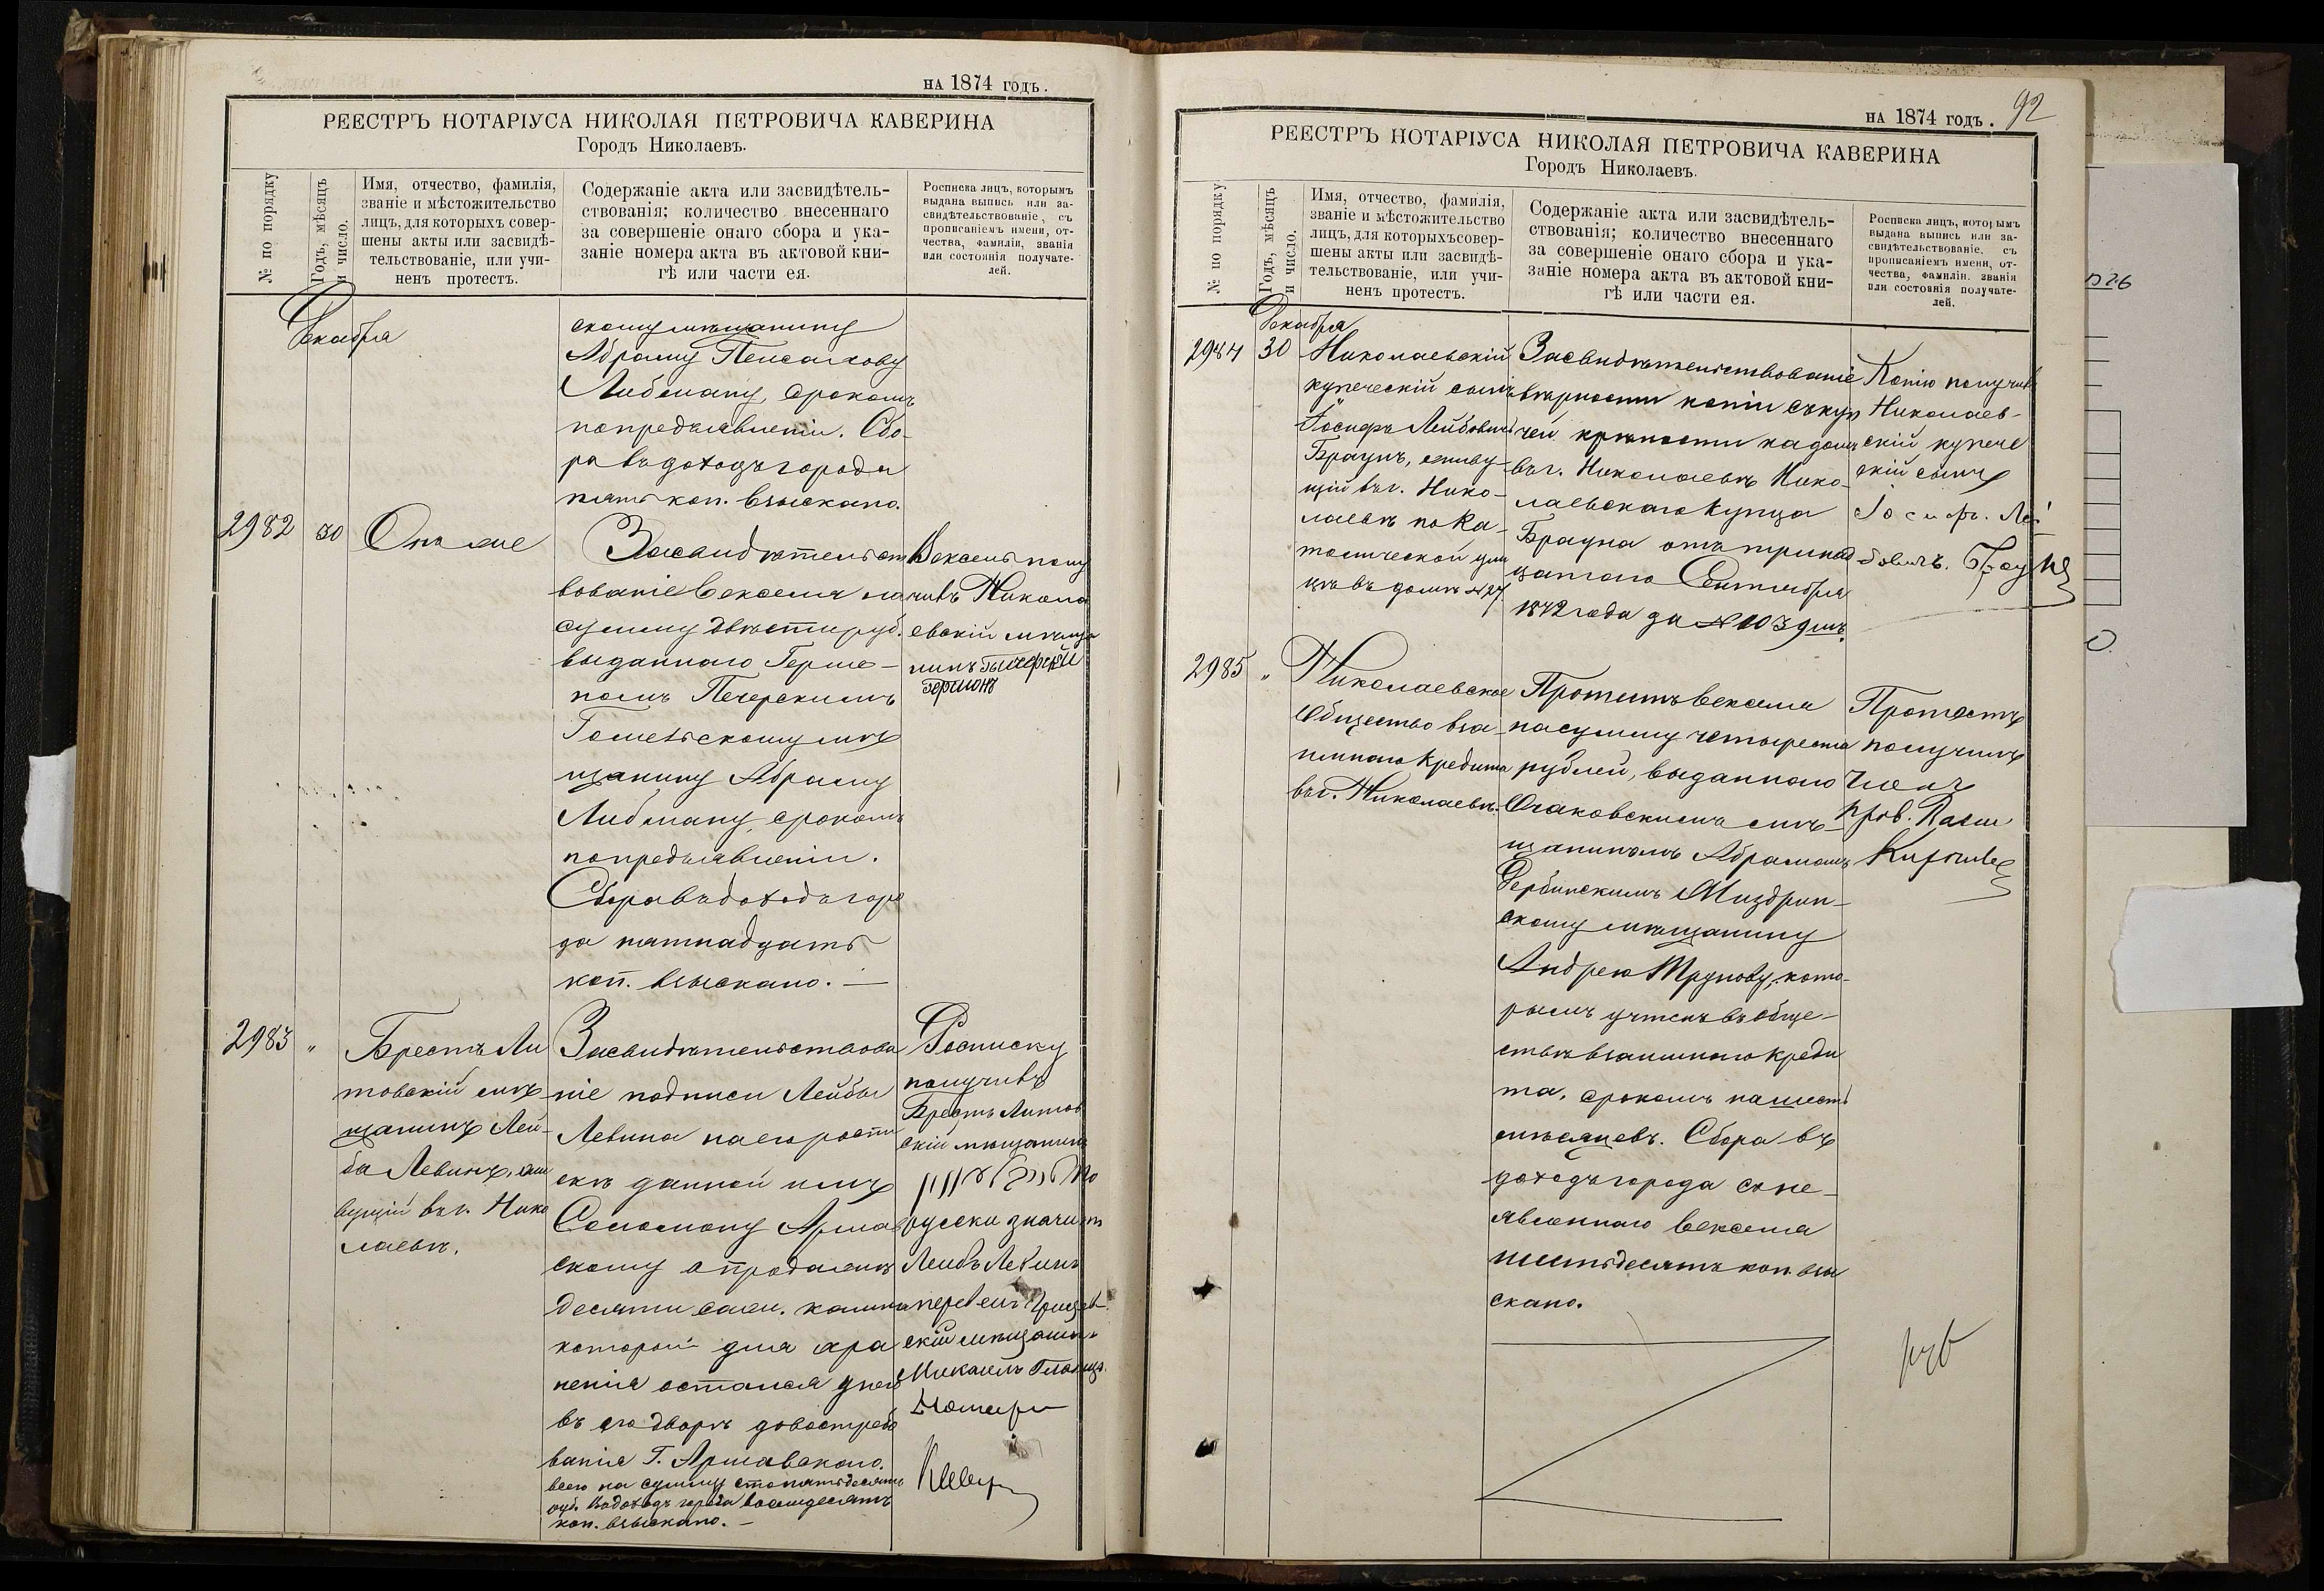 на 1874 годъ.
РЕЕСТРЪ НОТАРІУСА НИКОЛАЯ ПЕТРОВИЧА КАВЕРИНА
Городъ Николаевъ.
№ по порядку
Годъ, мѣсяцъ
и число.
Имя, отчество, фамилія,
званіе и мѣстожительство
лицъ, для которыхъ совер-
шены акты или засвидѣ-
тельствованіе, или учи-
ненъ протестъ.
Содержаніе акта или засвидѣтель-
ствованія; количество внесеннаго
за совершеніе онаго сбора и ука-
заніе номера акта въ актовой кни-
гѣ или части ея.
Росписка лицъ, которымъ
выдана выпись или за-
свидѣтельствованіе, съ
прописаніемъ имени, от-
чества, фамиліи, званія
или состоянія получате-
лей.
Декабря
скому мѣщанину
Абраму
Либману, срокомъ
по предъявленіи. Сбо-
ра въ доходъ города
пять коп. взыскано.
2982
30
Онъ же
Засвидѣтельст
вованіе векселя на
сумму двѣсти руб.
выданнаго Герше-
номъ Печерскимъ
Гомельскому мѣ
щанину Абраму
Либману, срокомъ
по предъявленіи.
Сбора въ доходъ горо
да пятнадцать
коп. взыскано. —
Вексель полу
чивъ Никола
евскій мѣща
нинъ
2983
"
Брестъ Ли
товскій мѣ
щанинъ Лей-
ба Левинъ, жи
вущій въ г. Нико
лаевѣ.
Засвидѣтельствова
ніе подписи Лейбы
Левина на его роспи
скѣ данной имъ
Соломону Аршав
скому о продажѣ
десяти саж. камня
который для хра
ненія остался у него
въ его дворѣ до востребо
ванія Г. Аршавскаго.
всего на сумму сто пятьдесятъ
руб. Въ доходъ города восемдесятъ
коп. взыскано. —
Росписку
получивъ
Брестъ Литов
скій мѣщанинъ
по
русски значитъ
Лейбъ Левинъ
перевелъ
скій мѣщанинъ
Михаилъ
на 1874 годъ.
92
РЕЕСТРЪ НОТАРІУСА НИКОЛАЯ ПЕТРОВИЧА КАВЕРИНА
Городъ Николаевъ.
№ по порядку
Годъ, мѣсяцъ
и число.
Имя, отчество, фамилія,
званіе и мѣстожительство
лицъ, для которыхъ совер-
шены акты или засвидѣ-
тельствованіе, или учи-
ненъ протестъ.
Содержаніе акта или засвидѣтель-
ствованія; количество внесеннаго
за совершеніе онаго сбора и ука-
заніе номера акта въ актовой кни-
гѣ или части ея.
Росписка лицъ, которымъ
выдана выпись или за-
свидѣтельствованіе, съ
прописаніемъ имени, от-
чества, фамиліи, званія
или состоянія получате-
лей.
Декабря
2984
30
Николаевскій
купеческій сынъ
Іосифъ Лейбовичъ
Браунъ, живу-
щій въ г. Нико-
лаевѣ по Ка-
толической ули
цѣ въ домѣ № 27
Засвидѣтельствованіе
вѣрности копіи съ куп
чей крѣпости на домъ
въ г. Николаевѣ Нико-
лаевскаго купца
Брауна отъ тринад
цатаго Сентября
1872 года за № 103 дмъ.
Копію получилъ
Николаев-
скій купече
скій сынъ
Іосифъ. Лей
бовичъ. Браунъ
2985
"
Николаевское
Общество вза
имнаго Кредита
въ г. Николаевѣ.
Протестъ векселя
на сумму четыреста
рублей, выданнаго
Очаковскимъ мѣ-
щаниномъ Абрамомъ
Дербинскимъ
скому мѣщанину
Андрею Трунову, кото-
рымъ учтенъ въ Обще-
ствѣ взаимнаго креди
та, срокомъ на шесть
мѣсяцевъ. Сбора въ
доходъ города съ не-
явленнаго векселя
шестьдесятъ коп. взы
скано.
Протестъ
получилъ
Членъ